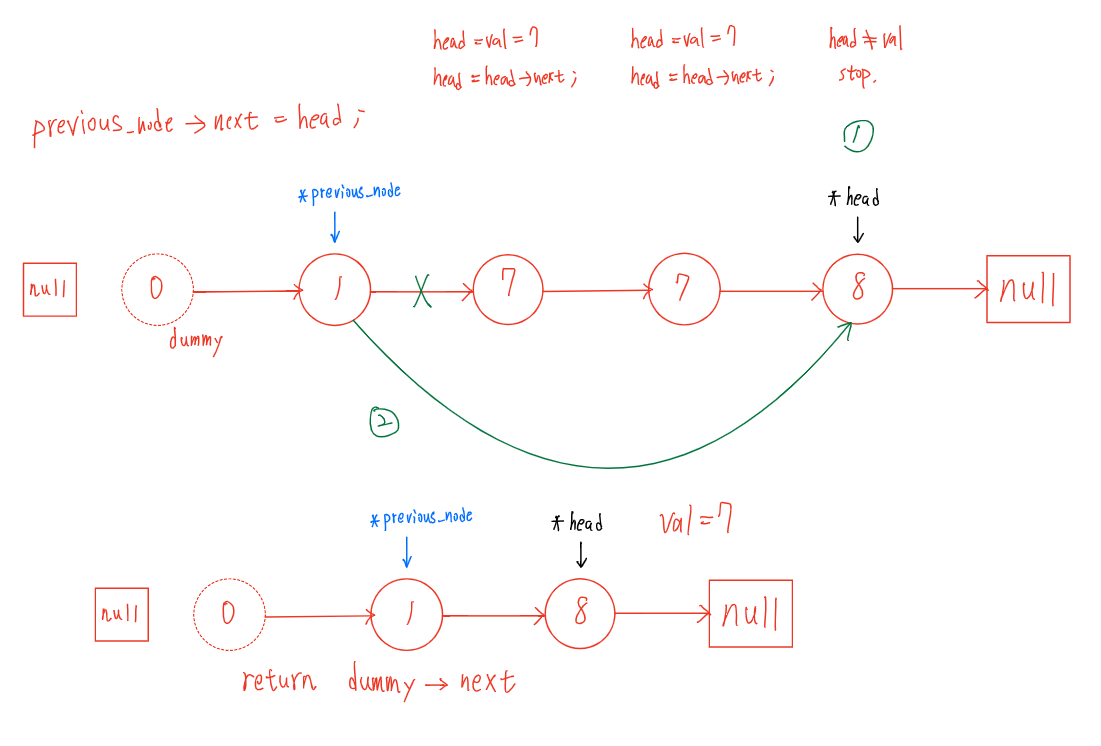 head = val = 7
head = val = 7
head ≠ val
head = head → next ;
head = head → next ;
stop.
previous_node → next = head ;
1
*previous_node
*head
null
0
1
7
7
8
null
dummy
2
*previous_node
*head
val = 7
null
0
1
8
null
return dummy → next